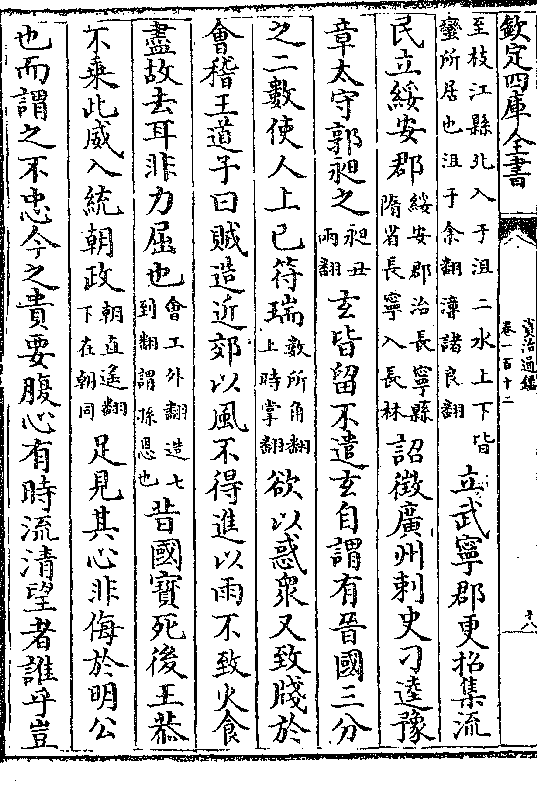 欽定四庫全書
資治通鑑
卷一百十二
十八
至枝江縣北入于沮二水上下皆
蠻所居也沮于余翻漳諸良翻
立武寧郡更招集流
民立綏安郡
綏安郡治長寧縣
隋省長寧入長林
詔徵廣州刺史刁逵豫
章太守郭昶之
昶丑
兩翻
玄皆留不遣玄自謂有晉國三分
之二數使人上已符瑞
數所角翻
上時掌翻
欲以惑衆又致牋於
會稽王道子曰賊造近郊以風不得進以雨不致火食
盡故去耳非力屈也
會工外翻造七
到翻謂孫恩也
昔國寶死後王恭
不乘此威入統朝政
朝直遙翻
下在朝同
足見其心非侮於明公
也而謂之不忠今之貴要腹心有時流清望者誰乎豈